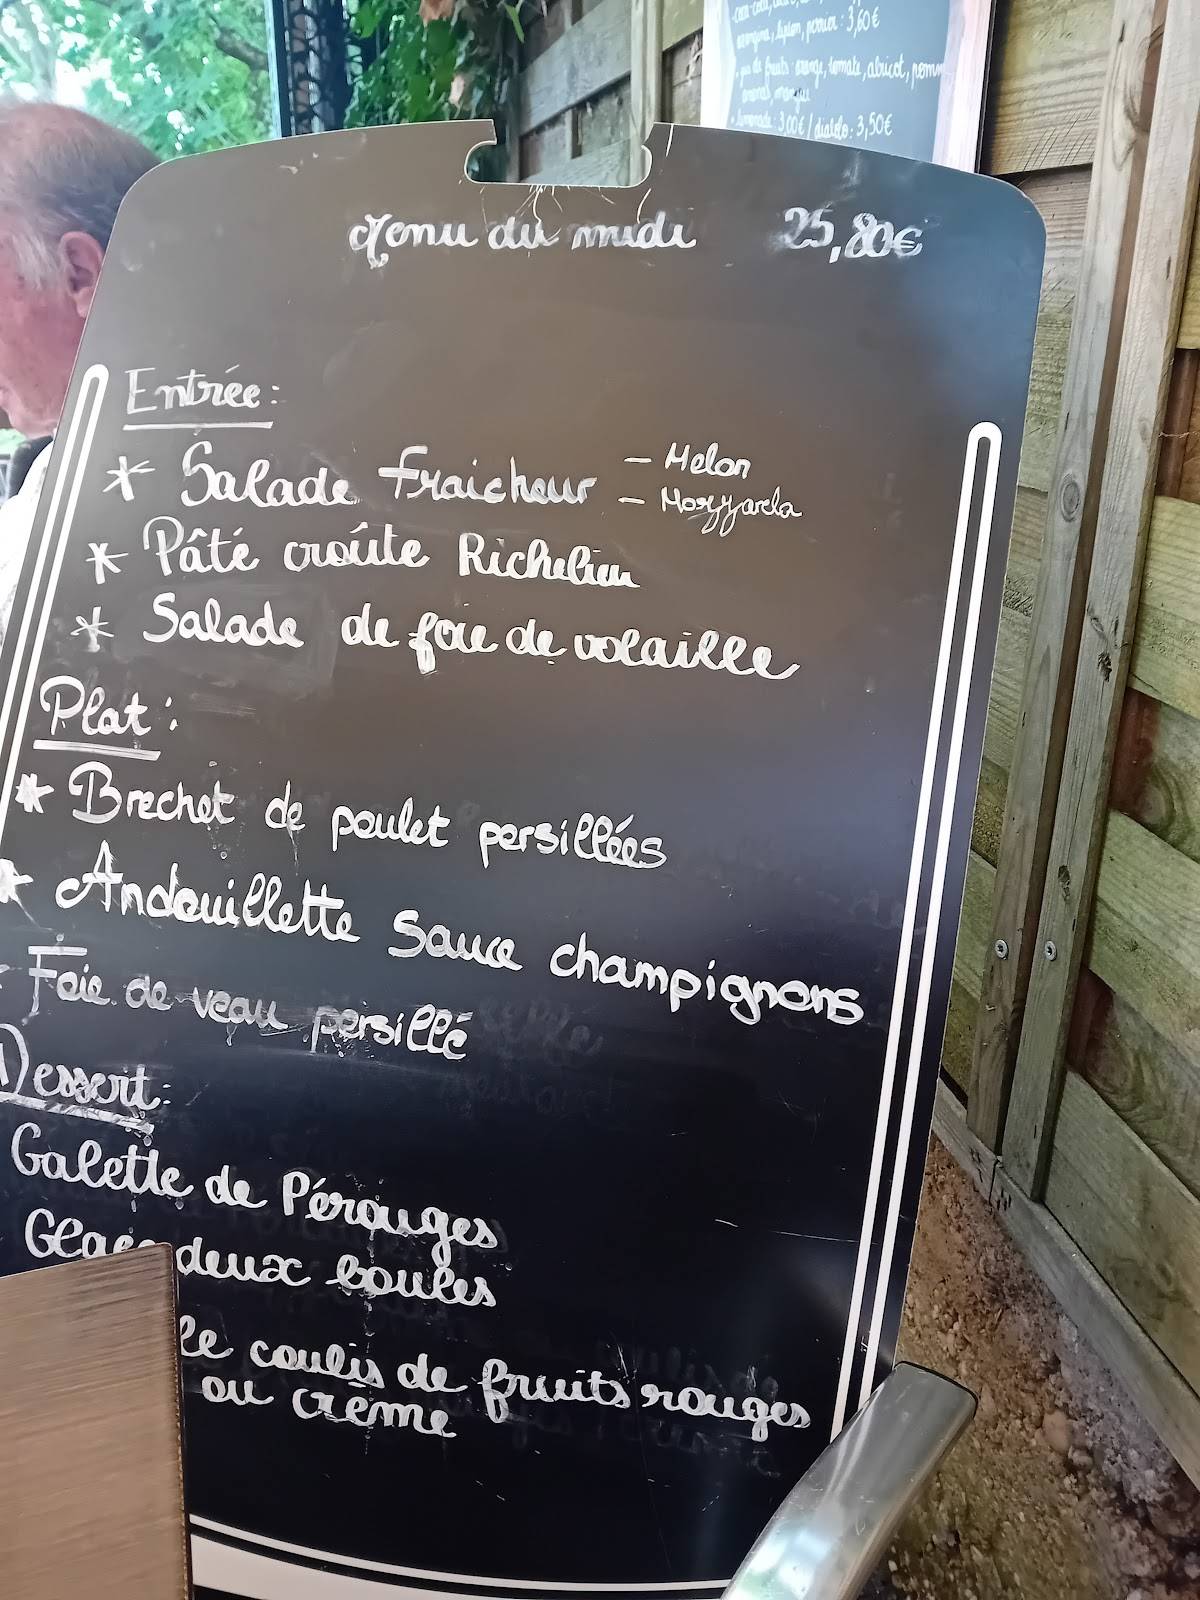 coca-cola,
orangina, lipton, perrier : 3,60€
jus de fruits : orange, tomate, abricot, pomm
ananas, mangue
limonade : 3,00€ / diabolo : 3,50€
Menu du midi 25,80€
Entrée :
* Salade Fraicheur - Melon
- Mozzarela
* Pâté croûte Richelieu
* Salade de foie de volaille
Plat :
* Brechet de poulet persillées
* Andouillette Sauce champignons
- Foie de veau persillé
Dessert :
Galette de Pérouges
Glace deux boules
le coulis de fruits rouges
ou crème